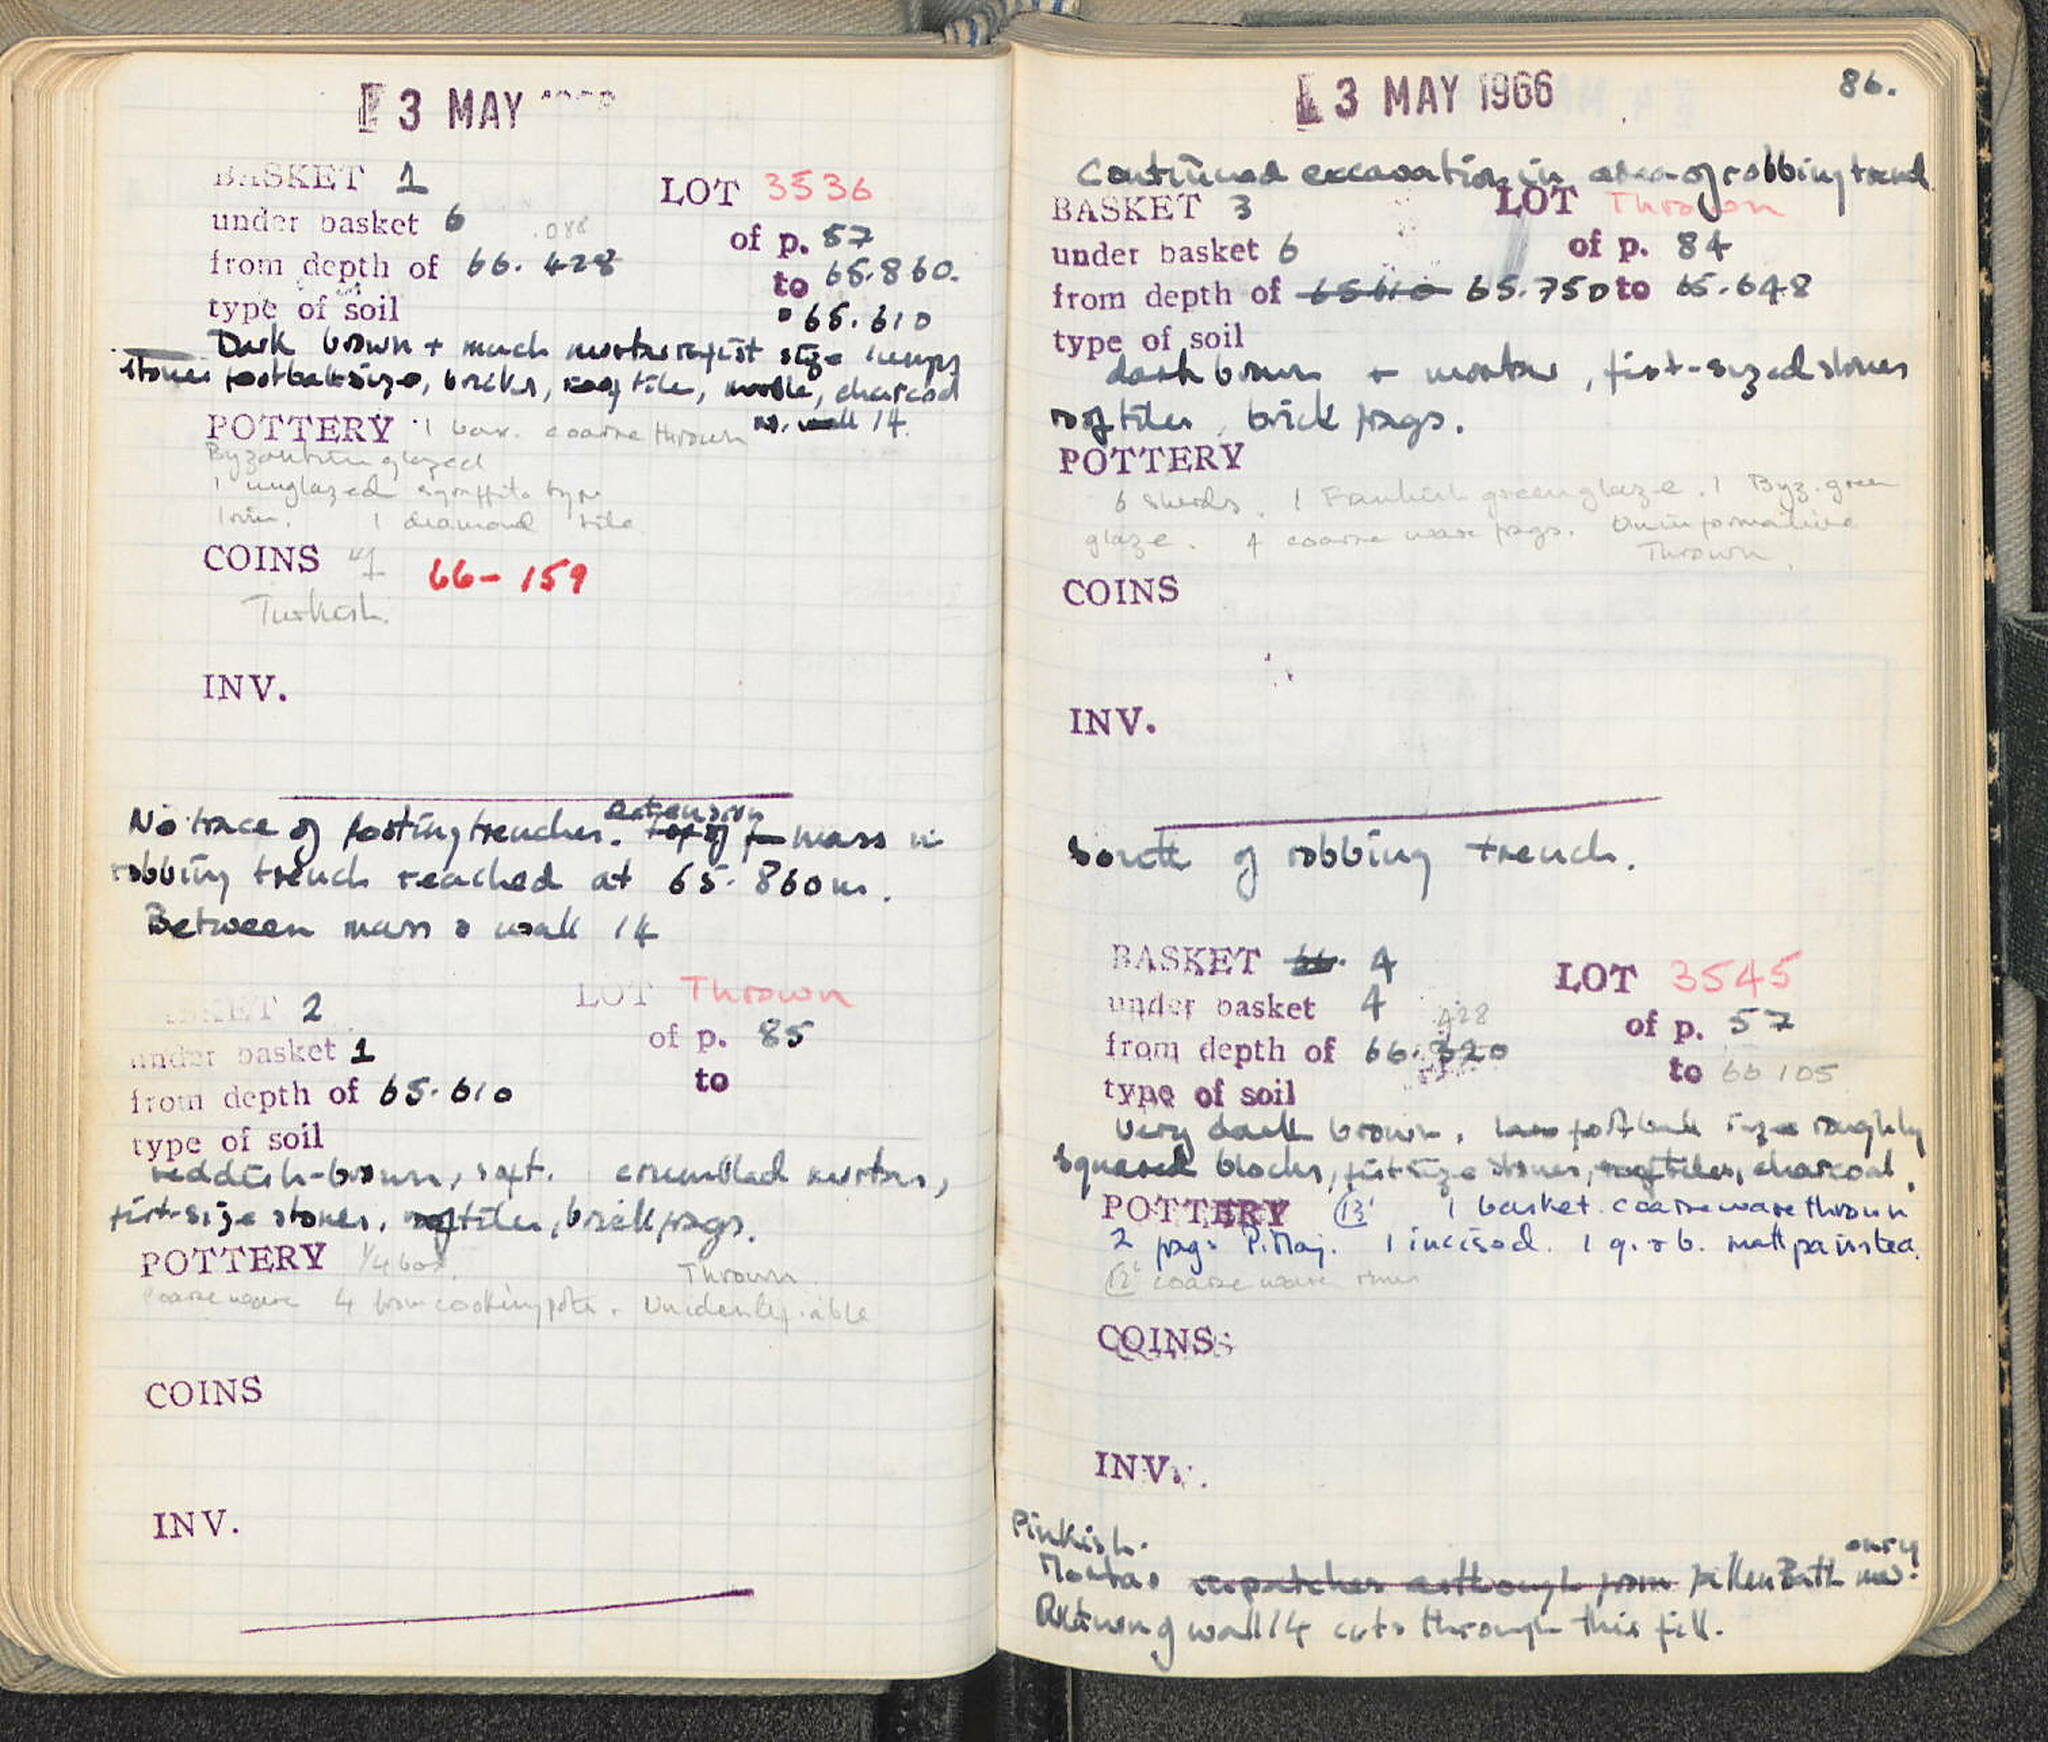 3 MAY
BASKET 1 LOT 3536
under basket 6 of p. 57
.088
from depth of 66.428 to 65.860.
type of soil 65.610
Dark brown + much mortar in fist size lumps
stones football size, bricks, roof tile, marble, charcoal
POTTERY 1 box. coarse thrown no. wall 14.
Byzantine glazed
1 unglazed sgraffito type
1 rim. 1 diamond tile
COINS 1 66-159
Turkish.
INV.
extension
No trace of footing trenches. top of mass in
robbing trench reached at 65.860m.
Between mass & wall 14
BASKET 2 LOT Thrown
under basket 1 of p. 85
from depth of 65.610 to
type of soil
reddish-brown, soft. crumbled mortar,
fist-size stones, roof tiles, brick frags.
POTTERY 1/4 box. Thrown
Coarse ware 4 from cooking pots. Unidentifiable
COINS
INV.
3 MAY 1966 86.
Continued excavation in area of robbing trench
BASKET 3 LOT Thrown
under basket 6 of p. 84
from depth of 65.610 65.750 to 65.648
type of soil
dark brown + mortar, fist-sized stones
roof tiles, brick frags.
POTTERY
6 sherds. 1 Frankish green glaze. 1 Byz. green
glaze. 4 coarse ware frags. Uninformative
Thrown.
COINS
INV.
South of robbing trench.
BASKET 66. 4 LOT 3545
under basket 4 of p. 57
428
from depth of 66.320 to 66 105
type of soil
very dark brown, football size roughly
squared blocks, fist size stones, roof tiles, charcoal.
POTTERY 13' 1 basket. coarse ware thrown
2 frags P. Maj. 1 incised. 1 g. & b. matt painted.
12' coarse ware rims
COINS
INV.
Pinkish.
Mortar in patches although from fallen Bath masonry.
Robbing of wall 14 cuts through this fill.